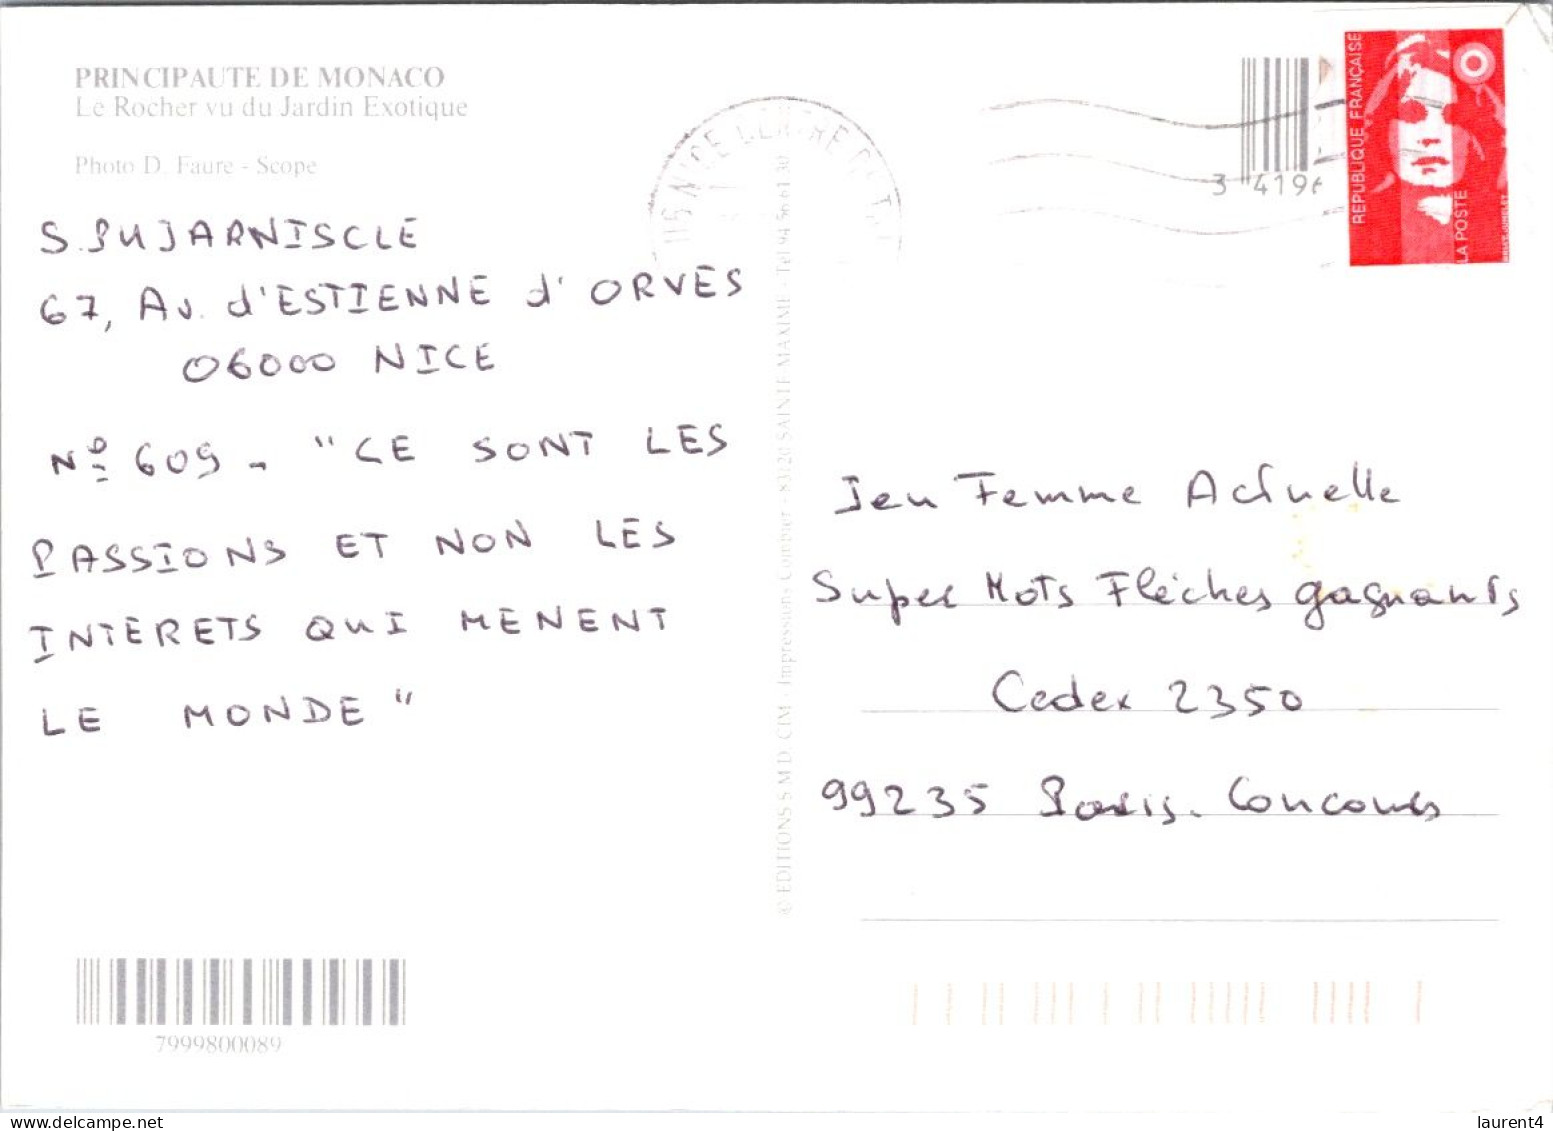 PRINCIPAUTE DE MONACO
Le Rocher vu du Jardin Exotique
Photo D. Faure - Scope
S. PUJARNISCLE
67, Av. d'ESTIENNE d'ORVES
06000 NICE
Nº 609 - "CE SONT LES
PASSIONS ET NON LES
INTERETS QUI MENENT
LE MONDE"
7999800089
© EDITIONS S.M.D. CIM - Impressions Combier - 83120 SAINTE MAXIME - Tel 94 56 61 30
06 NICE CENTRE
3 4196
REPUBLIQUE FRANÇAISE
LA POSTE
Jeu Femme Actuelle
Super Mots Flèches gagnants
Cedex 2350
99235 Paris. Concours
delcampe.net
laurent4